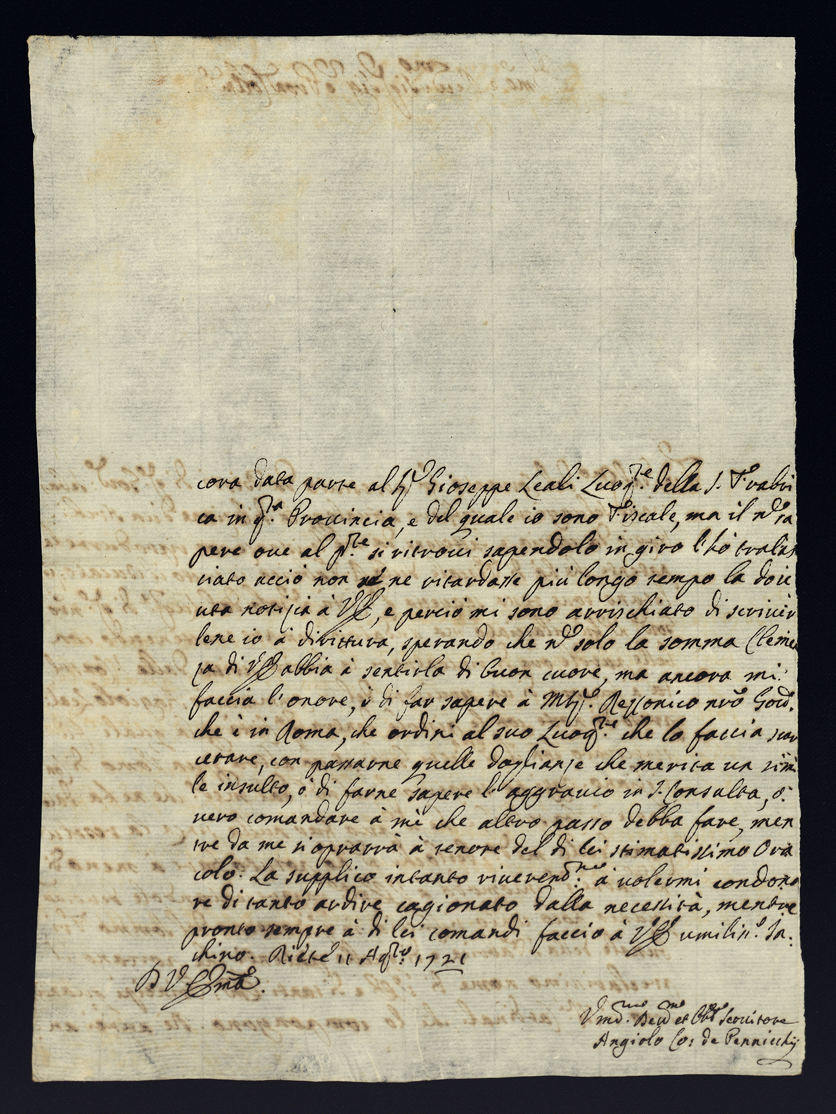 cora data parte al Sigr. Gioseppe Leali Luogte. della S. Fabri
ca in qta. Provincia, e del quale io sono Fiscale, ma il no sa
pere ove al pnte. si ritrovi sapendolo in giro l'hó tralas
ciato acció non ne ritardasse piú longo tempo la dovu
uta notizia á VE, e perció mi sono arrischiato di scriver
lene io á dirittura, sperando che no solo la somma Clemen
za di VE abbia á sentirla di buon cuore, ma ancora mi
faccia l'onore, ó di far sapere á Msr. Rezzonico nro Gov.
che é in Roma, che ordini al suo Luogte. che lo faccia scar
cerare, con passarne quelle doglianze che merita un simi
le insulto, ó di farne sapere l'aggravio in S. Consulta, ó
vero comandare á mé che altro passo debba fare, men
tre da me si oprarrá á tenore del di lei stimatissimo Ora
colo. La supplico intanto riverend. á volermi condona
re di tanto ardire cagionato dalla necessitá, mentre
pronto sempre á di lei comandi faccio á VE umiliss. In
chino. Riete 11 Agto. 1721
D V Ema.
Vmo. Devo et Obo Servitore
Angiolo Co: de Pennicchi